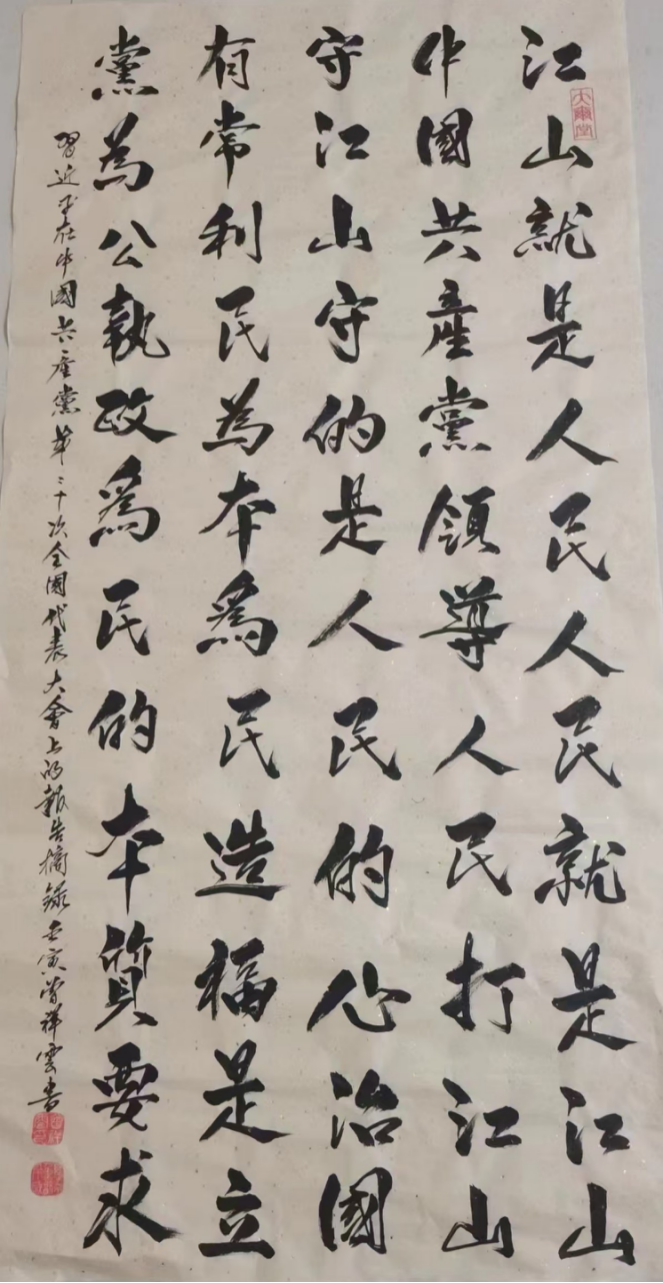 江山就是人民人民就是江山
中國共産黨領導人民打江山
守江山守的是人民的心治國
有常利民為本爲民造福是立
黨為公執政爲民的本質要求
習近平在中國共產黨第二十次全國代表大會上的報告摘錄壬寅曾祥雲書